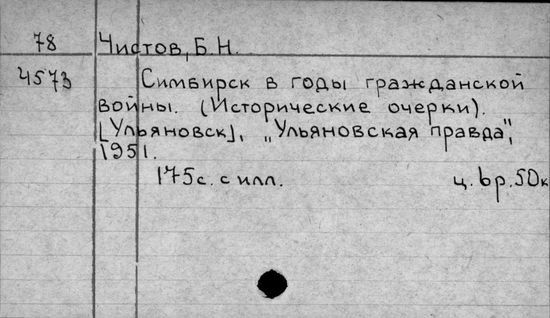 78 Чистов, Б.Н.
4573 Симбирск в годы гражданской
войны. (Исторические очерки).
[Ульяновск], „Ульяновская правда",
1951.
175с. с илл. ц. 6р. 50к